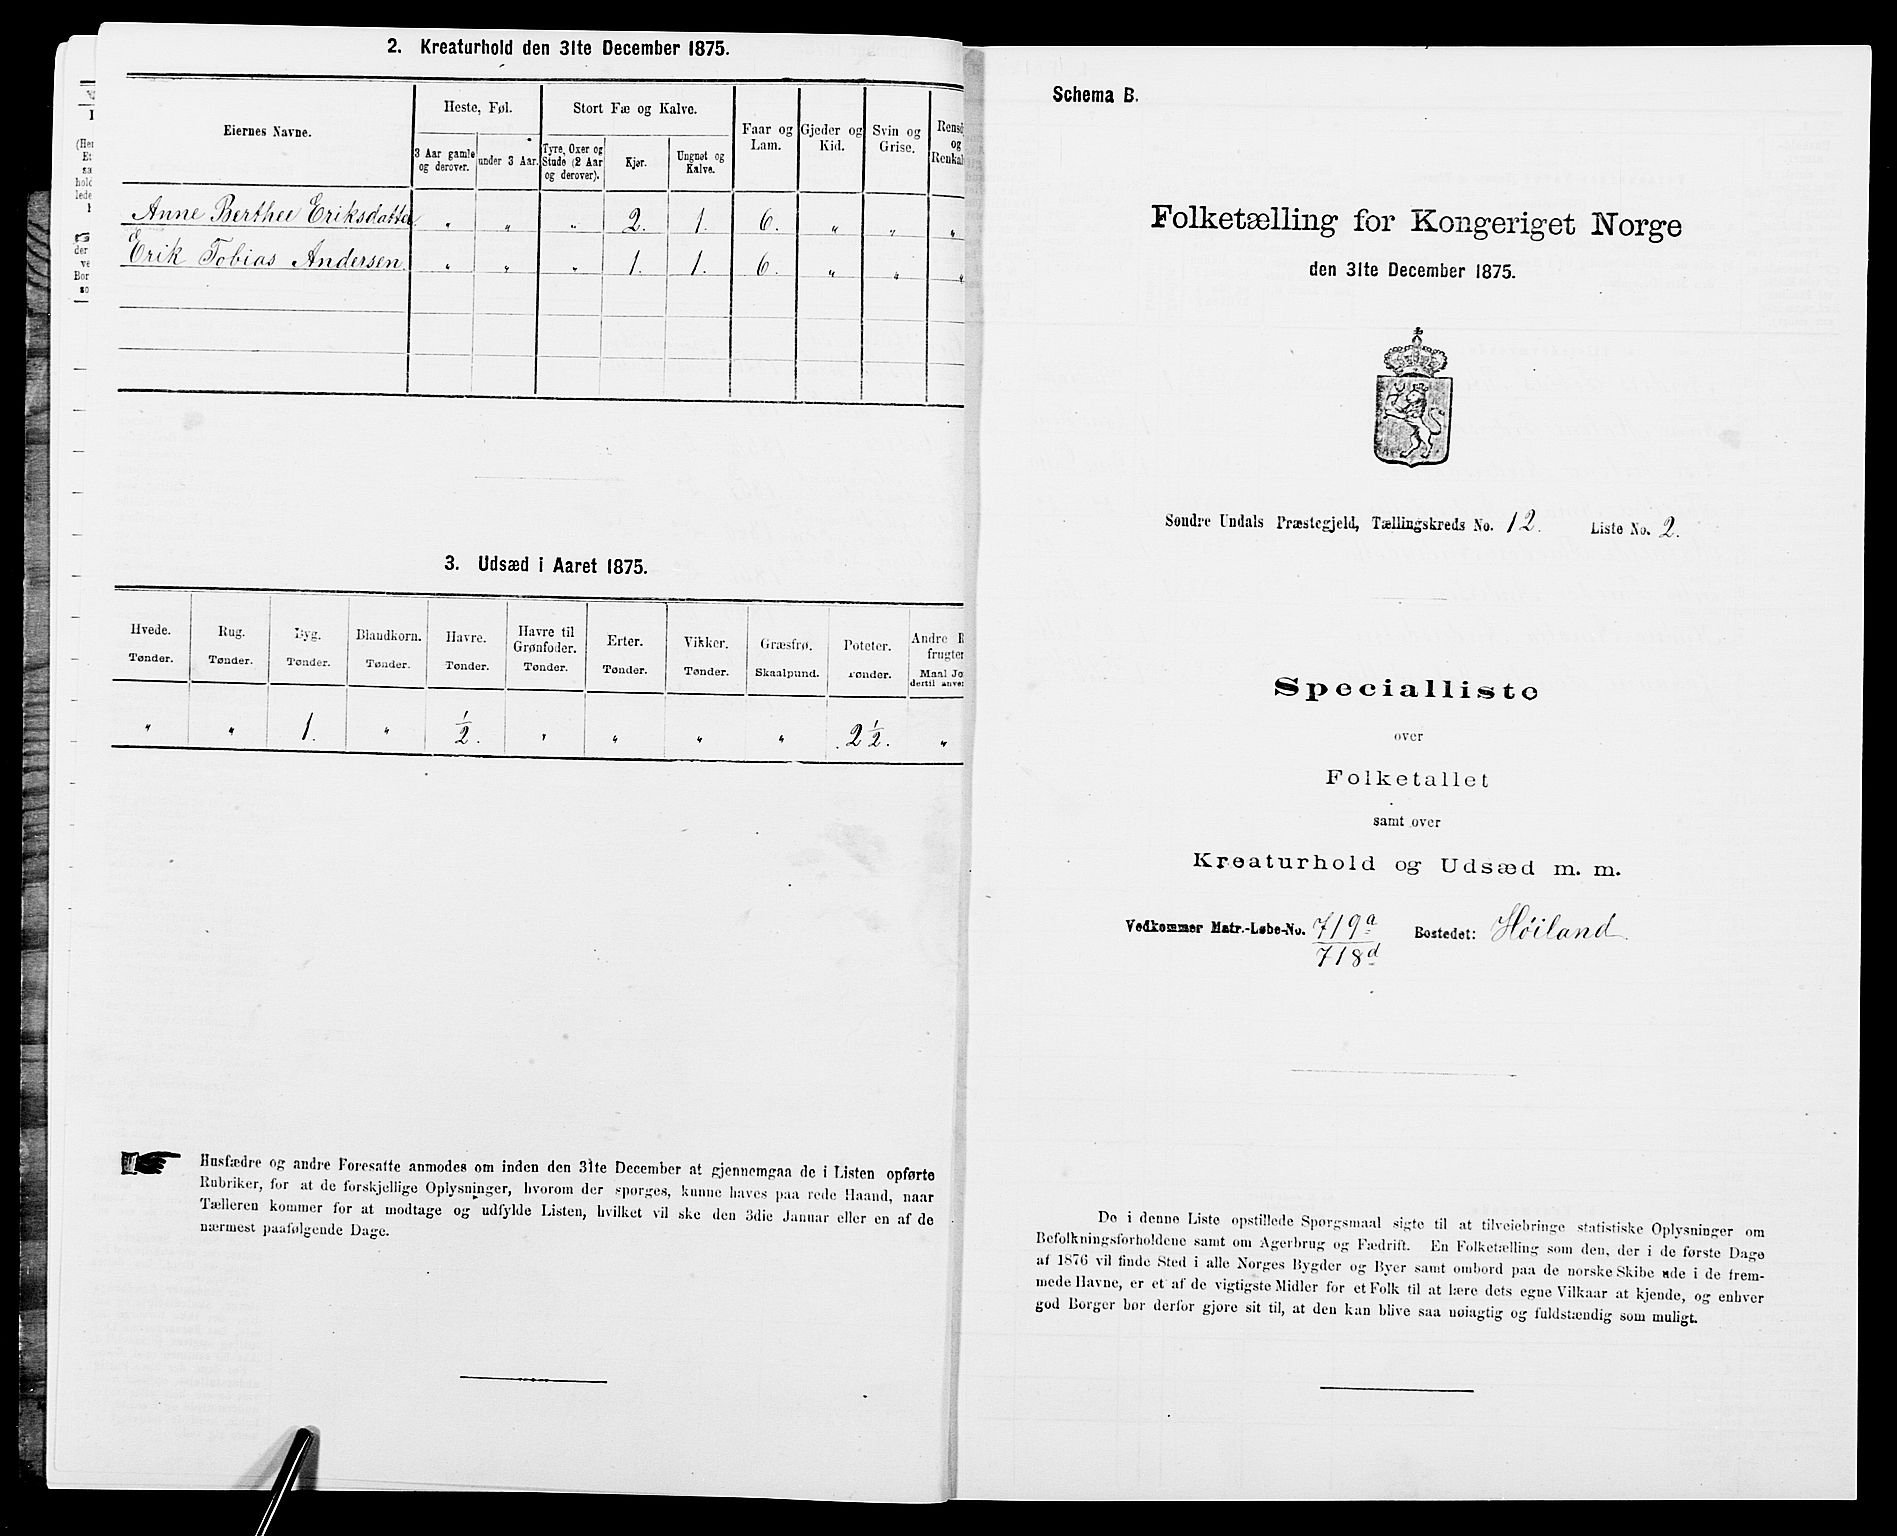 2. Kreaturhold den 31te December 1875.
Eiernes Navne.
Heste, Føl.
Stort Fæ og Kalve.
Faar og
Lam.
Gjeder og
Kid.
Svin og
Grise.
og
3 Aar gamle
og derover.
under 3 Aar.
Tyre, Oxer og
Stude (2 Aar
og derover).
Kjør.
Ungnøt og
Kalve.
Anne Berthee Eriksdatter " " " 2. 1. 6. " " "
Erik Tobias Andersen. " " " 1. 1. 6. " " "
3. Udsæd i Aaret 1875.
Hvede. Rug. Byg. Blandkorn. Havre. Havre til Grønfoder. Erter. Vikker. Græsfrø. Poteter. Andre
Tønder. Tønder. Tønder. Tønder. Tønder. Tønder. Tønder. Tønder. Skaalpund. Tønder. Maal
" " 1. " 1/2. " " " " 2 1/2. "
Husfædre og andre Foresatte anmodes om inden den 31te December at gjennemgaa de i Listen opførte
Rubriker, for at de forskjellige Oplysninger, hvorom der spørges, kunne haves paa rede Haand, naar
Tælleren kommer for at modtage og udfylde Listen, hvilket vil ske den 3die Januar eller en af de
nærmest paafølgende Dage.
Schema B.
Folketælling for Kongeriget Norge
den 31te December 1875.
Søndre Undals Præstegjeld, Tællingskreds No. 12. Liste No. 2.
Specialliste
over
Folketallet
samt over
Kreaturhold og Udsæd m. m.
Vedkommer Matr.-Løbe-No. 719a Bostedet: Höiland.
718d
De i denne Liste opstillede Spørgsmaal sigte til at tilveiebringe statistiske Oplysninger om
Befolkningsforholdene samt om Agerbrug og Fædrift. En Folketælling som den, der i de første Dage
af 1876 vil finde Sted i alle Norges Bygder og Byer samt ombord paa de norske Skibe ude i de frem-
mede Havne, er et af de vigtigste Midler for et Folk til at lære dets egne Vilkaar at kjende, og enhver
god Borger bør derfor gjøre sit til, at den kan blive saa nøiagtig og fuldstændig som muligt.